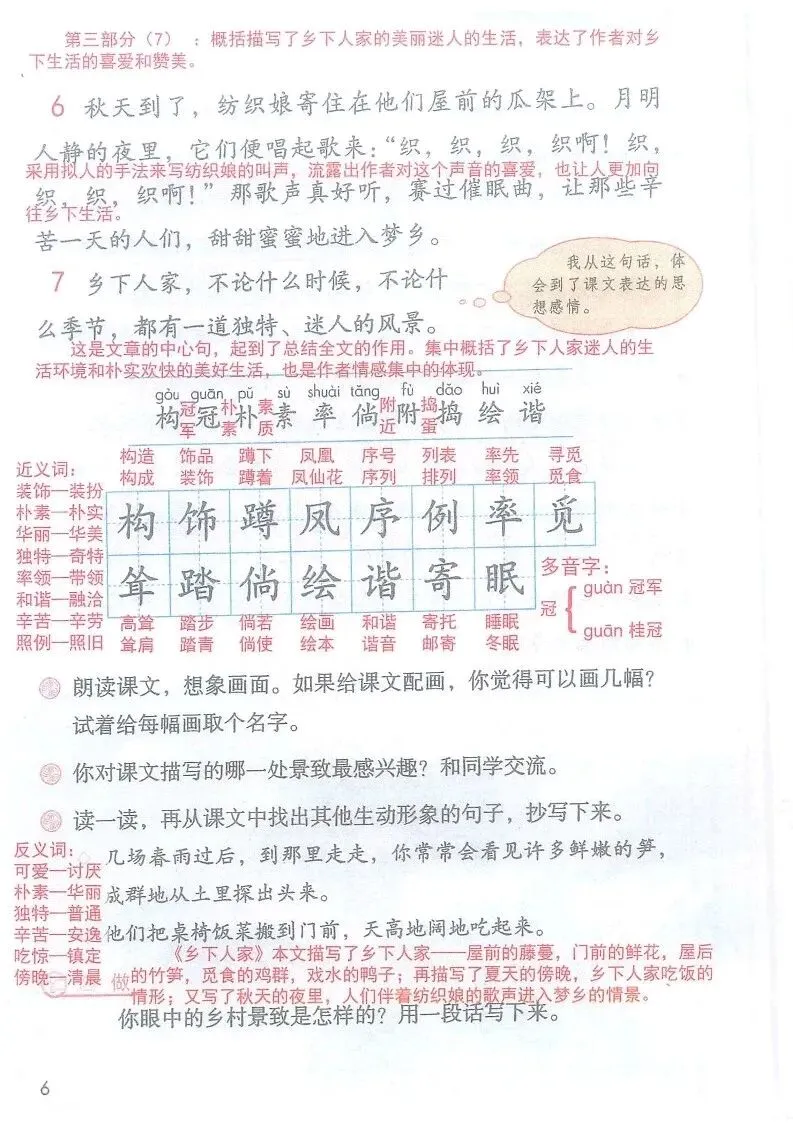 第三部分（7） ：概括描写了乡下人家的美丽迷人的生活，表达了作者对乡
下生活的喜爱和赞美。
6 秋天到了，纺织娘寄住在他们屋前的瓜架上。月明
人静的夜里，它们便唱起歌来：“织，织，织，织啊！织，
采用拟人的手法来写纺织娘的叫声，流露出作者对这个声音的喜爱，也让人更加向
织，织，织啊！”那歌声真好听，赛过催眠曲，让那些辛
往乡下生活。
苦一天的人们，甜甜蜜蜜地进入梦乡。
7 乡下人家，不论什么时候，不论什
么季节，都有一道独特、迷人的风景。
我从这句话，体
会到了课文表达的思
想感情。
这是文章的中心句，起到了总结全文的作用。集中概括了乡下人家迷人的生
活环境和朴实欢快的美好生活，也是作者情感集中的体现。
gòu guān pǔ sù shuài tǎng fù dǎo huì xié
构 冠 朴 素 率 倘 附 捣 绘 谐
冠军 朴素 素质 附近 捣蛋
近义词：
装饰—装扮
朴素—朴实
华丽—华美
独特—奇特
率领—带领
和谐—融洽
辛苦—辛劳
照例—照旧
构造 饰品 蹲下 凤凰 序号 列表 率先 寻觅
构成 装饰 蹲着 凤仙花 序列 排列 率领 觅食
构 饰 蹲 凤 序 例 率 觅
耸 踏 倘 绘 谐 寄 眠
高耸 踏步 倘若 绘画 和谐 寄托 睡眠
耸肩 踏青 倘使 绘本 谐音 邮寄 冬眠
多音字：
冠
guàn 冠军
guān 桂冠
朗读课文，想象画面。如果给课文配画，你觉得可以画几幅？
试着给每幅画取个名字。
你对课文描写的哪一处景致最感兴趣？和同学交流。
读一读，再从课文中找出其他生动形象的句子，抄写下来。
反义词：
可爱—讨厌
朴素—华丽
独特—普通
辛苦—安逸
吃惊—镇定
傍晚—清晨
几场春雨过后，到那里走走，你常常会看见许多鲜嫩的笋，
成群地从土里探出头来。
他们把桌椅饭菜搬到门前，天高地阔地吃起来。
《乡下人家》本文描写了乡下人家——屋前的藤蔓，门前的鲜花，屋后
的竹笋，觅食的鸡群，戏水的鸭子；再描写了夏天的傍晚，乡下人家吃饭的
情形；又写了秋天的夜里，人们伴着纺织娘的歌声进入梦乡的情景。
做
你眼中的乡村景致是怎样的？用一段话写下来。
6